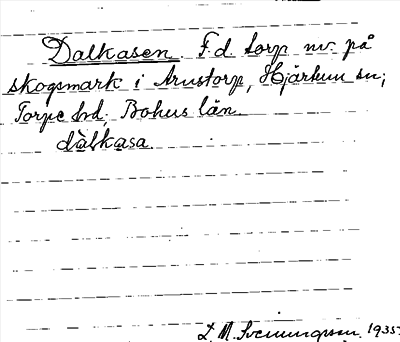 Dalkasen. F. d. torp nv. på
skogsmark i Arustorp, Hjärtum sn;
Torpe hd, Bohus län.
dàlkasa.
L. M. Svenungsson. 1935.